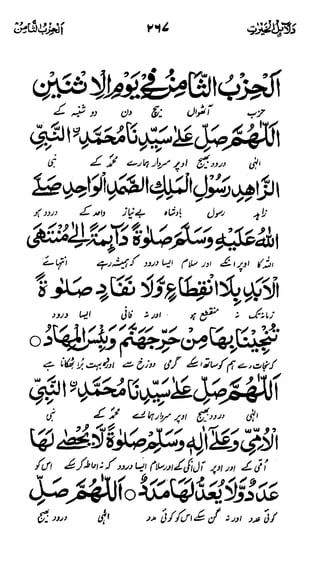 دلائل الخیرات ۲۶۷ الحزب الثامن
اَلْحِزْبُ الثَّامِنُ فِيْ يَوْمِ الْاِثْنَيْنِ
حزب آٹھواں بیچ دن دو شنبہ کے
اَللّٰهُمَّ صَلِّ عَلٰى سَيِّدِنَا مُحَمَّدِ ۨ النَّبِيِّ
الٰہی درود بھیج اوپر سردار ہمارے محمدؐ کے نبی
الزَّاهِدِ رَسُوْلِ الْمَلِكِ الصَّمَدِ الْوَاحِدِ صَلَّى
زاہد رسول بادشاہ بے نیاز واحد کے درود ہو
اللهُ عَلَيْهِ وَسَلَّمَ صَلٰوةً دَآئِمَةً اِلٰى مُنْتَهَى
اللہ کا اوپر انکے اور سلام ایسا درود کہ ہمیشہ رہے انتہائے
الْاَبَدِ بِلَا انْقِطَاعٍ وَّلَا نَفَادٍ صَلٰوةً
زمانہ تک نہ منقطع ہو اور نہ فانی ایسا درود
تُنْجِيْنَا بِهَا مِنْ حَرِّ جَهَنَّمَ وَبِئْسَ الْمِهَادُ ○
کہ نجات دے ہم کو ساتھ اسکے گرمی دوزخ سے اور بہت بُرا ٹھکانا ہے
اَللّٰهُمَّ صَلِّ عَلٰى سَيِّدِنَا مُحَمَّدِ ۨ النَّبِيِّ
الٰہی درود بھیج اوپر سردار ہمارے محمدؐ کے نبی
الْاُمِّيِّ وَعَلٰٓى اٰلِهٖ وَسَلِّمْ صَلٰوةً لَّا يُحْصٰى لَهَا
اُمّی کے اور اوپر آل انکی کے اور سلام ایسا درود کہ نہ احاطہ کر سکے اس کو
عَدَدٌ وَّلَا يُعَدُّ لَهَا مَدَدٌ ○ اَللّٰهُمَّ صَلِّ
کوئی عدد اور نہ گن سکے اس کو کوئی مدد الٰہی درود بھیج